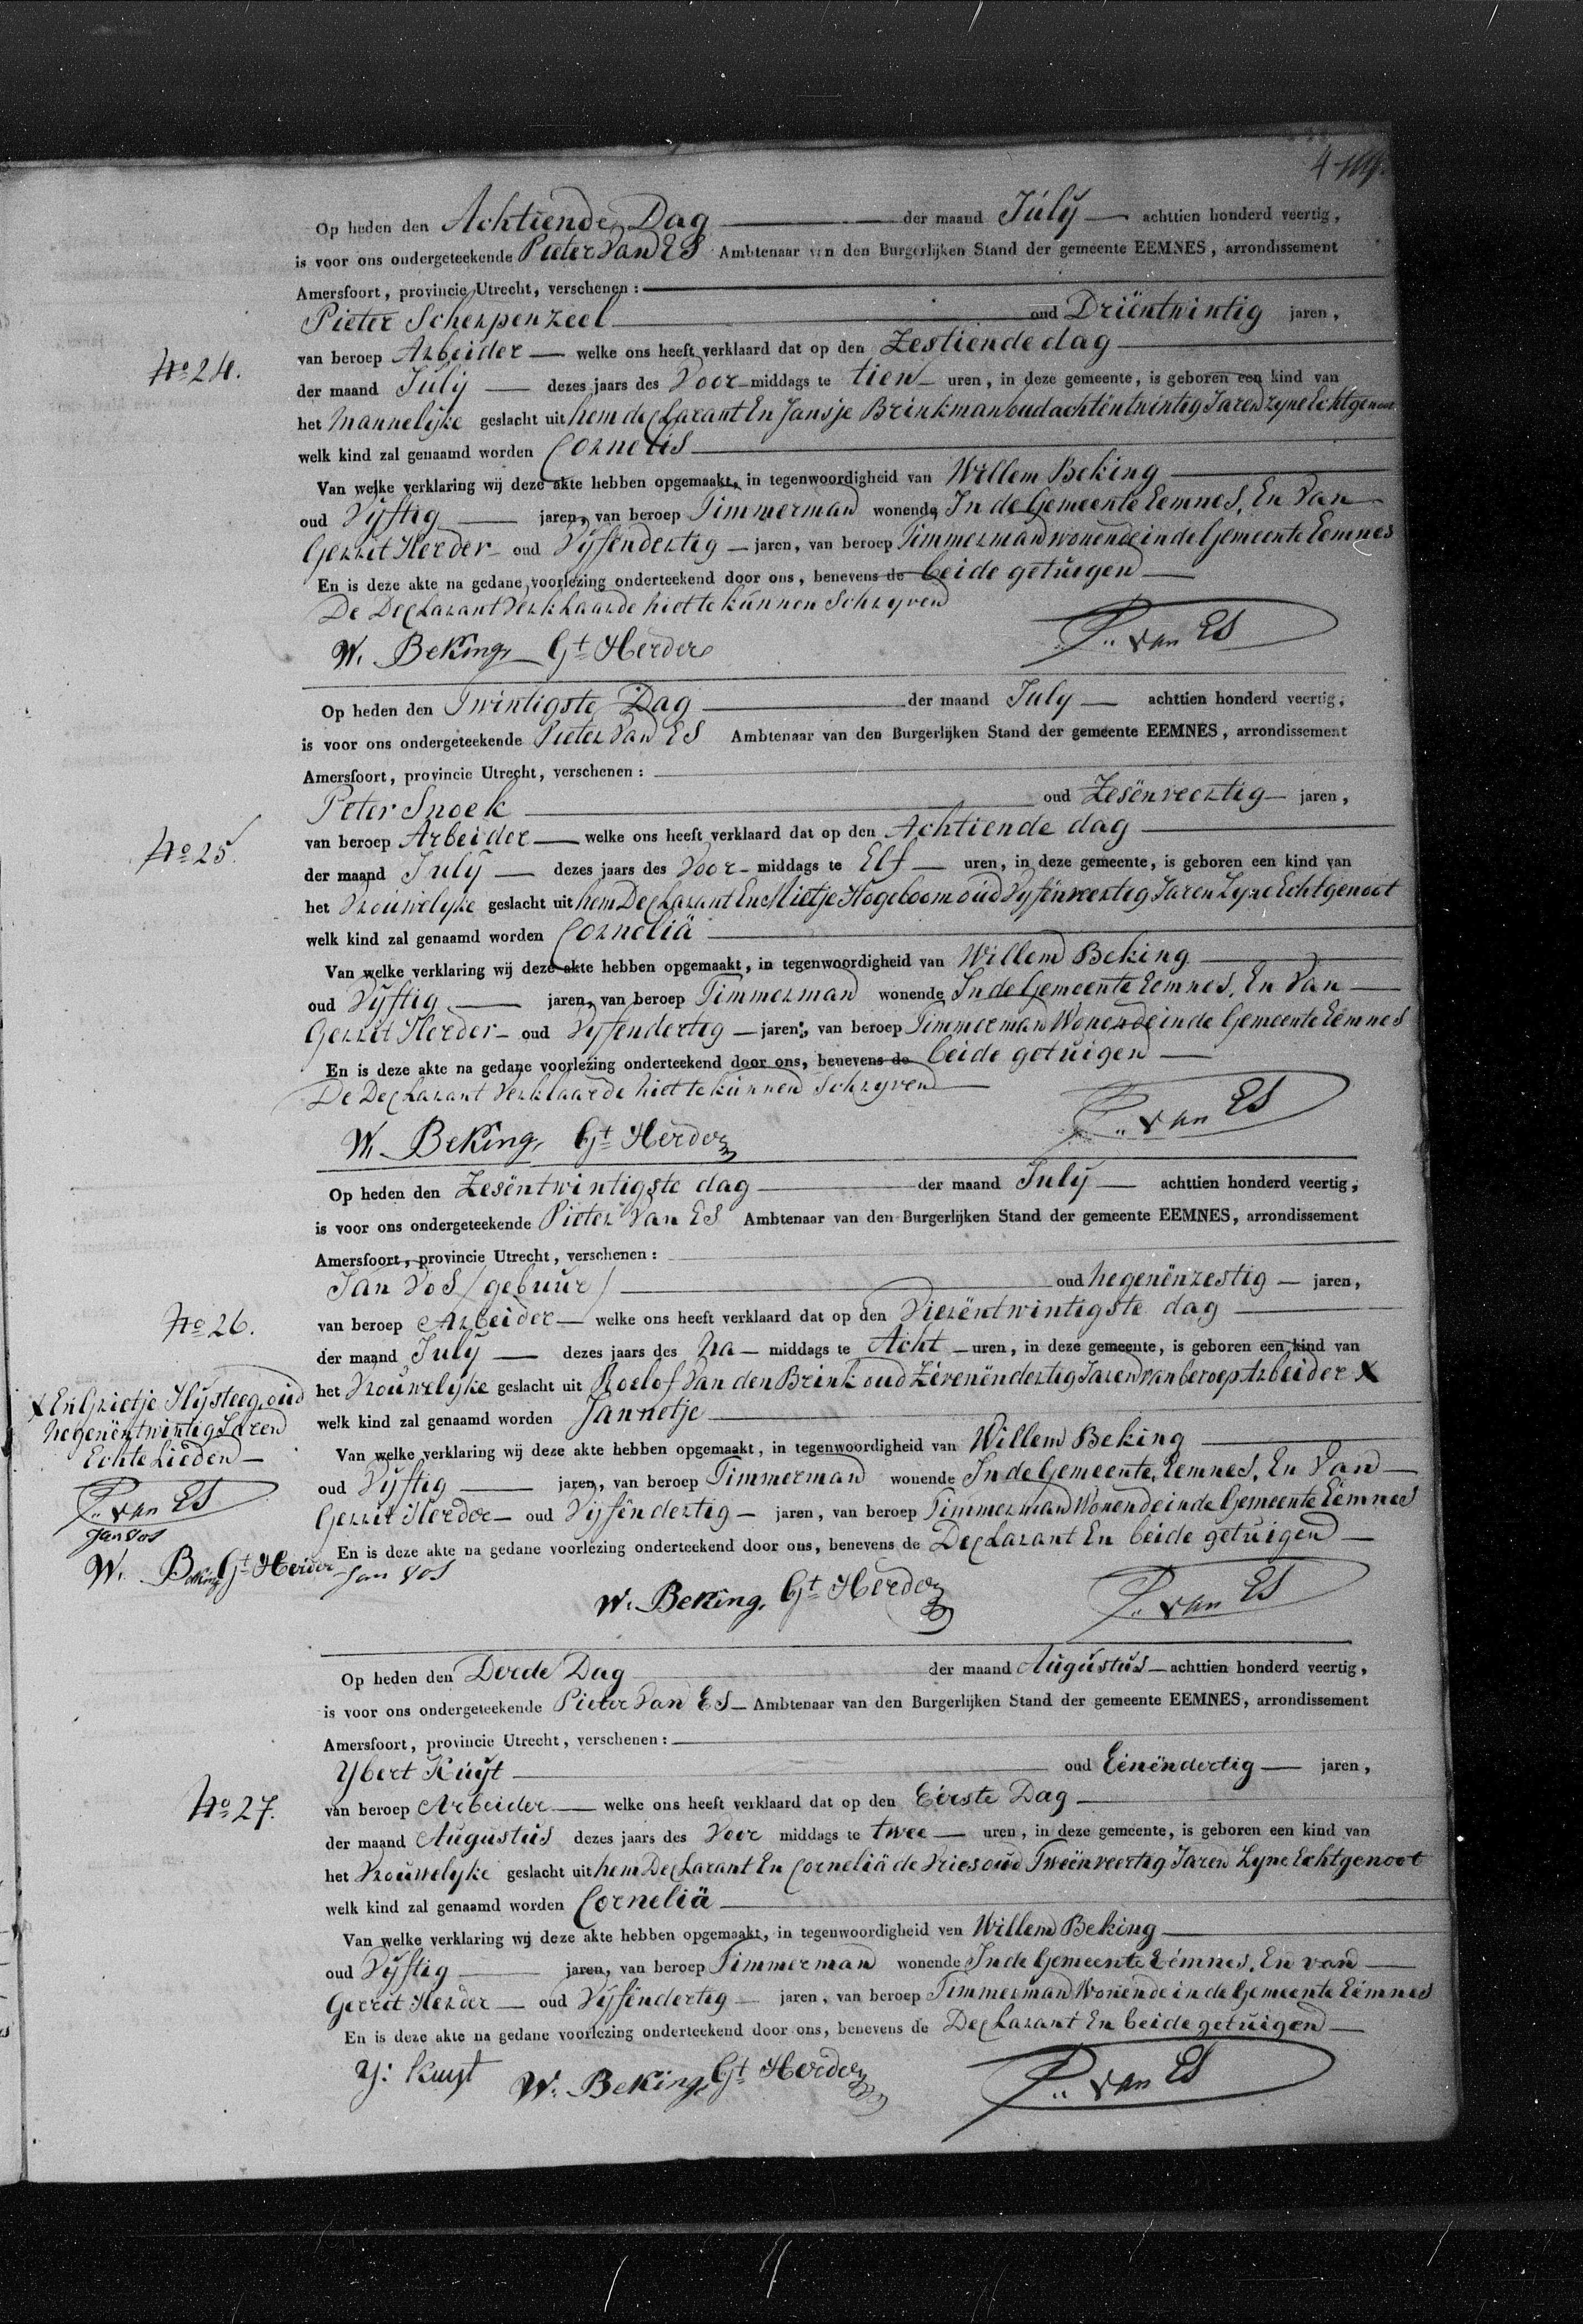 Op heden den Achtiende Dag der maand Július achttien honderd veertig,
is voor ons ondergeteekende Pieter Van ES Ambtenaar van den Burgerlijken Stand der gemeente EEMNES, arrondissement
Amersfoort, provincie Utrecht, verschenen:
Pieter Scherpenzeel oud Driëntwintig jaren,
No 24.
van beroep Arbeider welke ons heeft verklaard dat op den Zestiende dag
der maand July dezes jaars des Voor-middags te tien uren, in deze gemeente, is geboren een kind van
het Mannelijke geslacht uit hem declarant En Jansje Brinkman oud achtëntwintig Jaren zyne Echtgenoot
welk kind zal genaamd worden Cornelis
Van welke verklaring wij deze akte hebben opgemaakt, in tegenwoordigheid van Willem Beking
oud Vijftig jaren, van beroep Timmerman wonende In de Gemeente Eemnes, En Van
Gerrit Herder oud Vijfendertig jaren, van beroep Timmerman wonende in de Gemeente Eemnes
En is deze akte na gedane voorlezing onderteekend door ons, benevens de beide getuigen
De Declarant Verklaarde niet te kunnen Schryven
W. Beking Gt Herder P. van ES
Op heden den Twintigste Dag der maand July achttien honderd veertig,
is voor ons ondergeteekende Pieter Van ES Ambtenaar van den Burgerlijken Stand der gemeente EEMNES, arrondissement
Amersfoort, provincie Utrecht, verschenen:
Peter Snoek oud Zesënveertig jaren,
No 25.
van beroep Arbeider welke ons heeft verklaard dat op den Achtiende dag
der maand July dezes jaars des Voor-middags te Elf uren, in deze gemeente, is geboren een kind van
het Vrouwelyke geslacht uit hem Declarant En Mietje Hogeboom oud Vyfënveertig Jaren Zyne Echtgenoot
welk kind zal genaamd worden Corneliä
Van welke verklaring wij deze akte hebben opgemaakt, in tegenwoordigheid van Willem Beking
oud Vijftig jaren, van beroep Timmerman wonende In de Gemeente Eemnes, En Van
Gerrit Herder oud Vyfendertig jaren, van beroep Timmerman Wonende in de Gemeente Eemnes
En is deze akte na gedane voorlezing onderteekend door ons, benevens de beide getuigen
De Declarant Verklaarde niet te kunnen Schryven
W. Beking, Gt Herder P. van ES
Op heden den Zesëntwintigste dag der maand July achttien honderd veertig,
is voor ons ondergeteekende Pieter Van ES Ambtenaar van den Burgerlijken Stand der gemeente EEMNES, arrondissement
Amersfoort, provincie Utrecht, verschenen:
Jan Vos (gebuur) oud negenënzestig jaren,
No 26.
van beroep Arbeider welke ons heeft verklaard dat op den Vierëntwintigste dag
der maand July dezes jaars des Na-middags te Acht uren, in deze gemeente, is geboren een kind van
het Vrouwelyke geslacht uit Roelof Van den Brink oud Zevenëndertig Jaren van beroep Arbeider X
X En Grietje Hysteeg, oud
negenëntwintig Jaren
Echte Lieden
P. van ES
Jan Vos
W. Beking Gt Herder
welk kind zal genaamd worden Jannetje
Van welke verklaring wij deze akte hebben opgemaakt, in tegenwoordigheid van Willem Beking
oud Vyftig jaren, van beroep Timmerman wonende In de Gemeente Eemnes, En Van
Gerrit Herder oud Vijfëndertig jaren, van beroep Timmerman Wonende in de Gemeente Eemnes
En is deze akte na gedane voorlezing onderteekend door ons, benevens de Declarant En beide getuigen
Jan Vos
W. Beking, Gt Herder P. van ES
Op heden den Derde Dag der maand Augustus achttien honderd veertig,
is voor ons ondergeteekende Pieter Van ES Ambtenaar van den Burgerlijken Stand der gemeente EEMNES, arrondissement
Amersfoort, provincie Utrecht, verschenen:
Ybert Kuyt oud Eenëndertig jaren,
No 27.
van beroep Arbeider welke ons heeft verklaard dat op den Eerste Dag
der maand Augustus dezes jaars des Voor middags te twee uren, in deze gemeente, is geboren een kind van
het Vrouwelyke geslacht uit hem Declarant En Corneliä de Vries oud Tweënveertig Jaren Zyne Echtgenoot
welk kind zal genaamd worden Corneliä
Van welke verklaring wij deze akte hebben opgemaakt, in tegenwoordigheid ven Willem Beking
oud Vyftig jaren, van beroep Timmerman wonende In de Gemeente Eemnes, En van
Gerrit Herder oud Vijfëndertig jaren, van beroep Timmerman Wonende in de Gemeente Eemnes
En is deze akte na gedane voorlezing onderteekend door ons, benevens de Declarant En beide getuigen
Y: Kuyt W. Beking, Gt Herder P. van ES